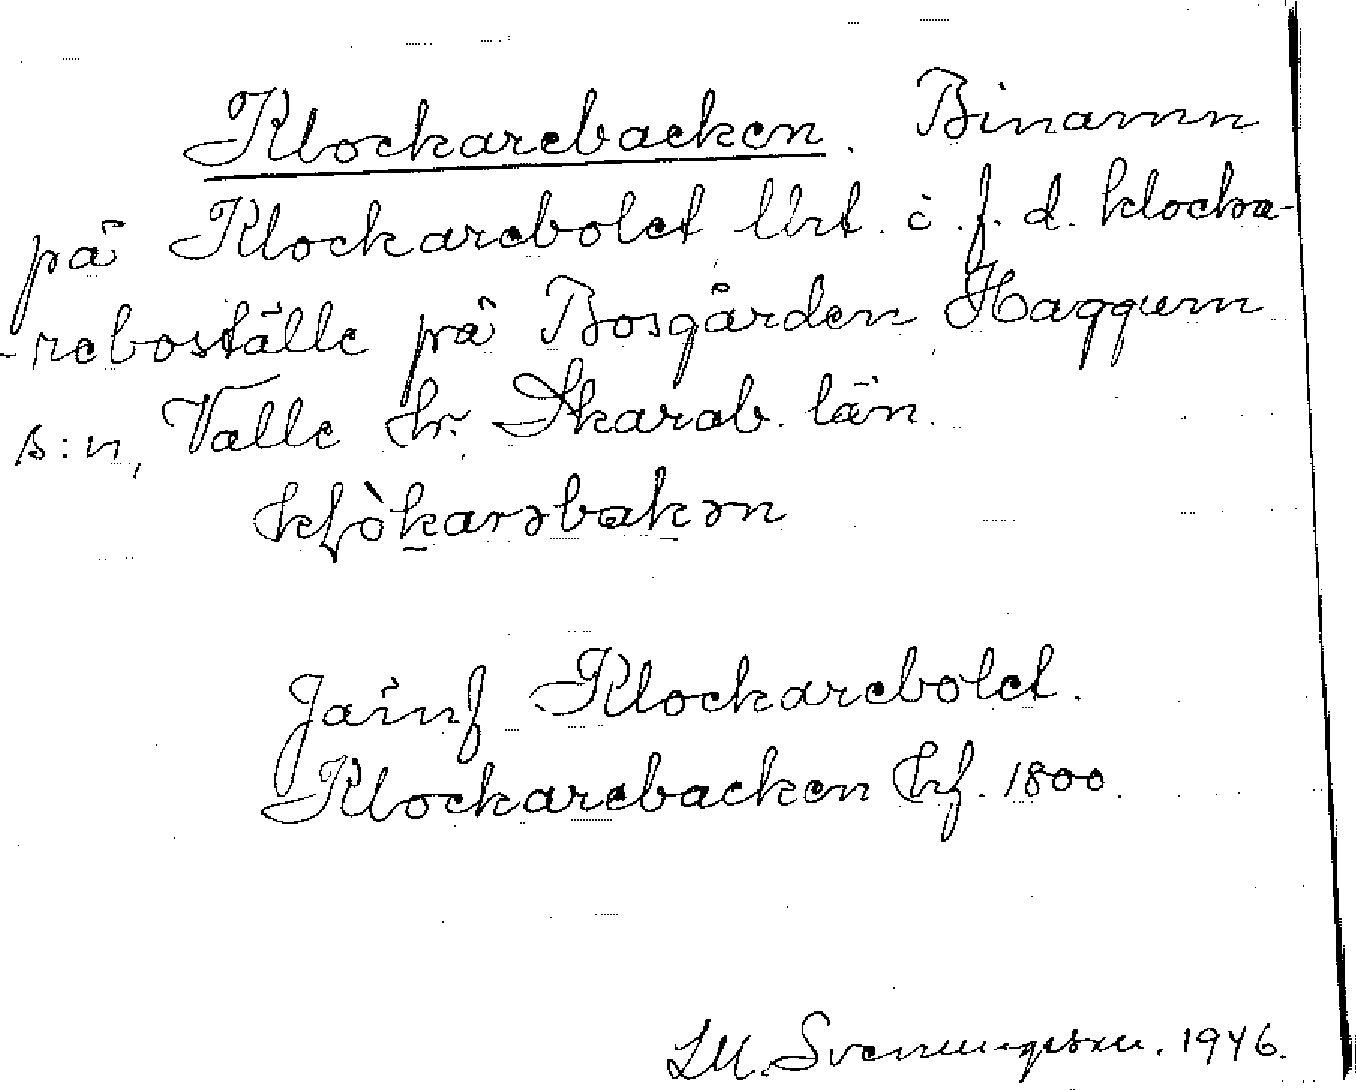 Klockarebacken. Binamn
på Klockarebolet lht. i f. d. klocka-
-reboställe på Bosgården Haggum
s:n, Valle hr. Skarab. län.
Jämf Klockarebolet.
Klockarebacken hf. 1800.
SM. Svenungsson. 1946.